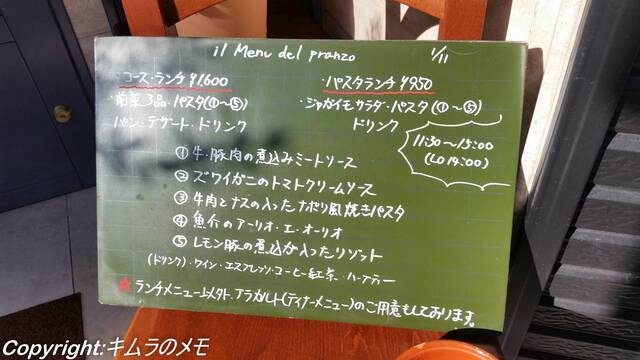 il Menu del pranzo 1/11
コース・ランチ ¥1600
・前菜3品・パスタ(①～⑤)
パン・デザート・ドリンク
・パスタランチ ¥950
・ジャガイモサラダ・パスタ(①～⑤)
ドリンク
11:30～15:00
(LO 14:00)
①牛・豚肉の煮込みミートソース
②ズワイガニのトマトクリームソース
③牛肉とナスの入ったナポリ風焼きパスタ
④魚介のアーリオ・エ・オーリオ
⑤レモン豚の煮込が入ったリゾット
(ドリンク)・ワイン・エスプレッソ・コーヒー・紅茶・ハーブティー
ランチメニュー以外ト、アラカルト(ディナーメニュー)のご用意もしております。
Copyright:キムラのメモ